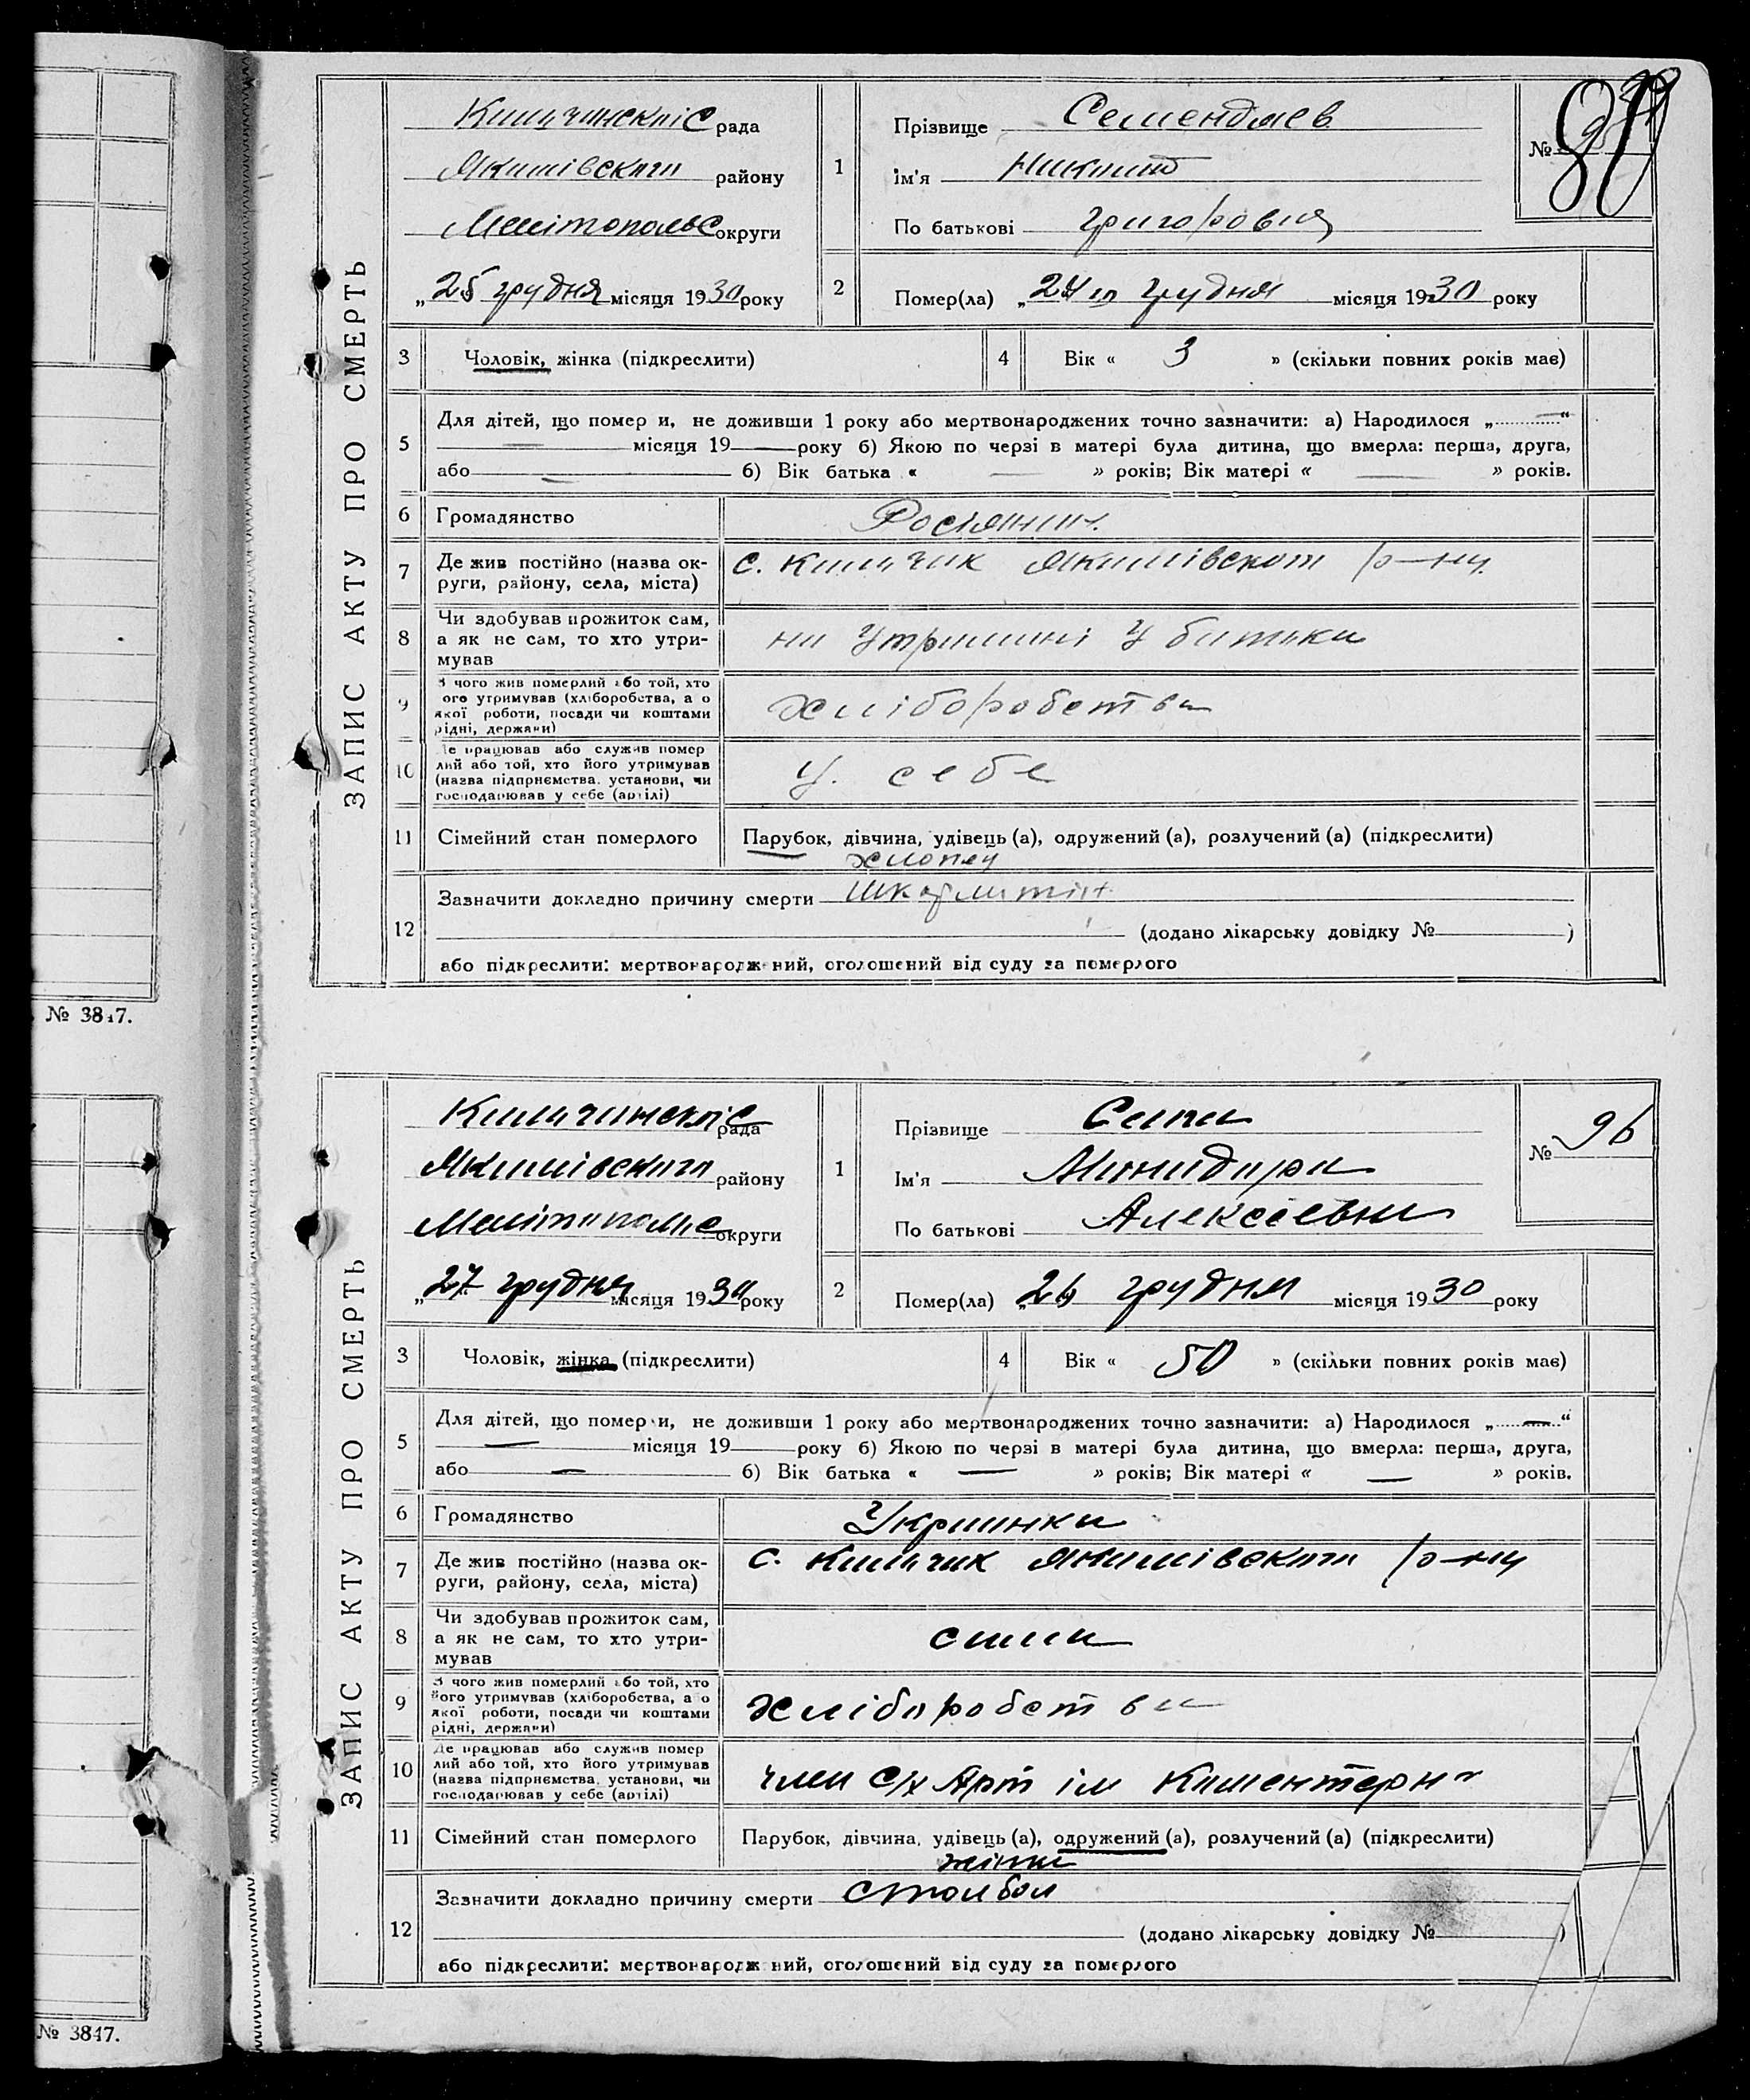 № 3847.
№ 3847.
ЗАПИС АКТУ ПРО СМЕРТЬ
рада
Якимівского району
Мелітопольс округи
„25 грудня місяця 1930 року
1
Прізвище Семендяев
Ім'я Никита
По батькові Григоровия
№
89
2
Помер(ла) „24го грудня місяця 1930 року
3
Чоловік, жінка (підкреслити)
4
Вік « 3 » (скільки повних років має)
5
Для дітей, що помер и, не доживши 1 року або мертвонароджених точно зазначити: а) Народилося „ — “
— місяця 19 — року б) Якою по черзі в матері була дитина, що вмерла: перша, друга,
або — б) Вік батька « — » років; Вік матері « — » років.
6
Громадянство
Росіянин.
7
Де жив постійно (назва ок-
руги, району, села, міста)
с. Якимівского р-ну.
8
Чи здобував прожиток сам,
а як не сам, то хто утри-
мував
на утримані у батька
9
З чого жив померлий або той, хто
ого утримував (хліборобства, а о
якої роботи, посади чи коштами
рідні, держави)
хліборобства
10
Де працював або служив помер
лий або той, хто його утримував
(назва підприємства, установи, чи
господарював у себе (артілі)
у. себе
11
Сімейний стан померлого
Парубок, дівчина, удівець (а), одружений (а), розлучений (а) (підкреслити)
хлопец
12
Зазначити докладно причину смерти
(додано лікарську довідку № )
або підкреслити: мертвонародж ний, оголошений від суду за померлого
ЗАПИС АКТУ ПРО СМЕРТЬ
рада
Якимівского району
Мелітопольс округи
„27 грудня місяця 1930 року
1
Прізвище Сапа
Ім'я
По батькові Алексеевна
№ 96
2
Помер(ла) „26 грудня місяця 1930 року
3
Чоловік, жінка (підкреслити)
4
Вік « 50 » (скільки повних років має)
5
Для дітей, що помер и, не доживши 1 року або мертвонароджених точно зазначити: а) Народилося „ — “
— місяця 19 — року б) Якою по черзі в матері була дитина, що вмерла: перша, друга,
або — б) Вік батька « — » років; Вік матері « — » років.
6
Громадянство
Украинка
7
Де жив постійно (назва ок-
руги, району, села, міста)
с. Якимівского р-ну
8
Чи здобував прожиток сам,
а як не сам, то хто утри-
мував
сама
9
З чого жив померлий або той, хто
його утримував (хліборобства, а о
якої роботи, посади чи коштами
рідні, держави)
хліборобства
10
Де працював або служив помер
лий або той, хто його утримував
(назва підприємства, установи, чи
господарював у себе (артілі)
член с/х Арт ім Коментерна
11
Сімейний стан померлого
Парубок, дівчина, удівець (а), одружений (а), розлучений (а) (підкреслити)
жінка
12
Зазначити докладно причину смерти
(додано лікарську довідку № )
або підкреслити: мертвонародж ний, оголошений від суду за померлого